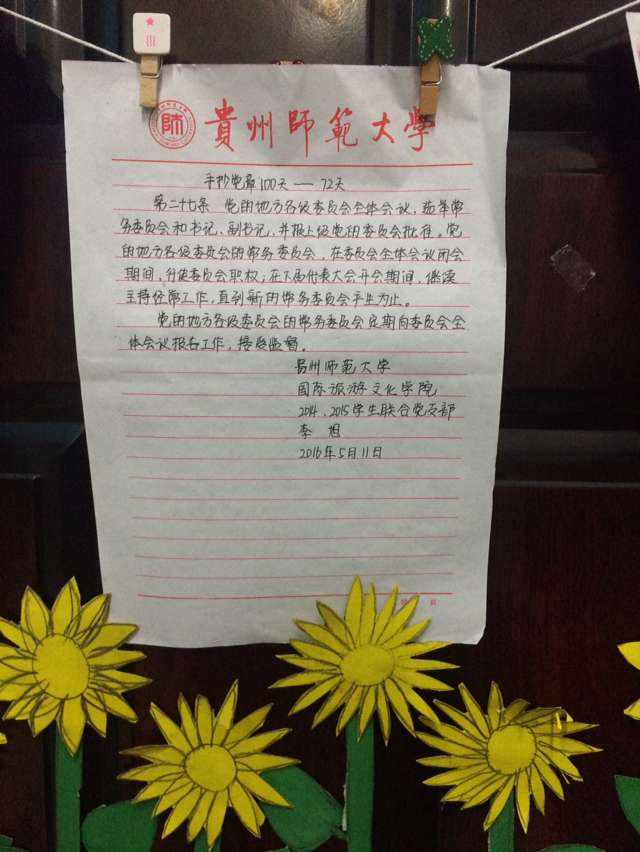 貴州師範大學
手抄党章100天——72天
第二十七条 党的地方各级委员会全体会议，选举常
务委员会和书记、副书记，并报上级党的委员会批准。党
的地方各级委员会的常务委员会，在委员会全体会议闭会
期间，行使委员会职权；在下届代表大会开会期间，继续
主持经常工作，直到新的常务委员会产生为止。
党的地方各级委员会的常务委员会定期向委员会全
体会议报告工作，接受监督。
贵州师范大学
国际旅游文化学院
2014、2015学生联合党支部
李旭
2016年5月11日